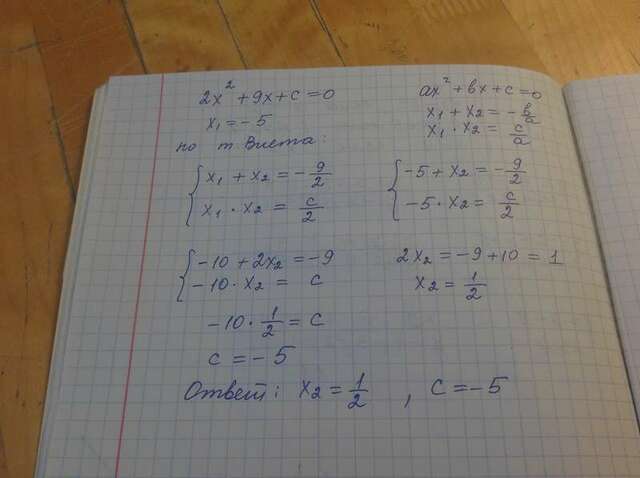 2x² + 9x + c = 0
x₁ = -5
по т Виета:
ax² + bx + c = 0
x₁ + x₂ = -b/a
x₁ · x₂ = c/a
{ x₁ + x₂ = -9/2
x₁ · x₂ = c/2
{ -5 + x₂ = -9/2
-5 · x₂ = c/2
{ -10 + 2x₂ = -9
-10 · x₂ = c
2x₂ = -9 + 10 = 1
x₂ = 1/2
-10 · 1/2 = c
c = -5
Ответ: x₂ = 1/2 , c = -5